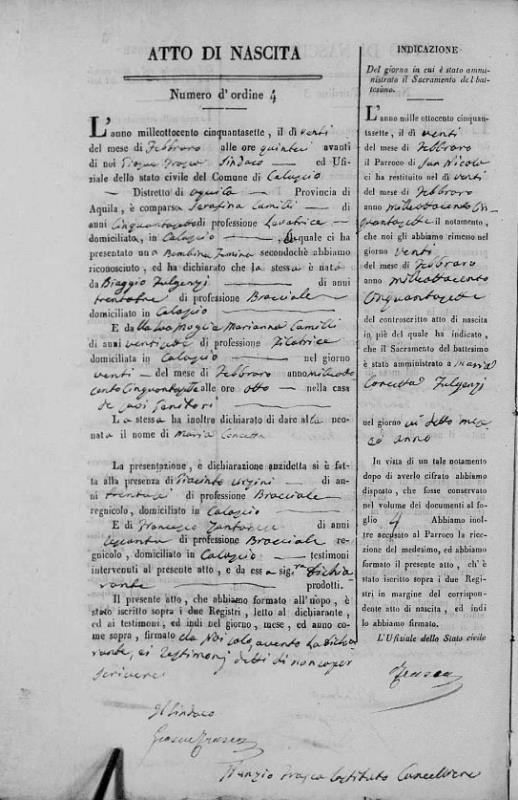 ATTO DI NASCITA
Numero d'ordine 4
L'anno milleottocento cinquantasette, il dì venti
del mese di Febbraro alle ore quindici avanti
di noi Giosue Frasca Sindaco ed Ufi-
ziale dello stato civile del Comune di Calascio
Distretto di Aquila Provincia di
Aquila, è comparsa Serafina Camilli di
anni cinquantotto di professione Levatrice
domiciliata, in Calascio, la quale ci ha
presentato una Bambina secondochè abbiamo
riconosciuto, ed ha dichiarato che la stessa è nata
da Biaggio Fulgenzj di anni
trentatre di professione Bracciale
domiciliato in Calascio
E da sua moglie Marianna Camilli
di anni di professione Filatrice
domiciliata in Calascio nel giorno
venti del mese di Febbraro anno milleotto
cento cinquantasette alle ore otto nella casa
de suoi Genitori
La stessa ha inoltre dichiarato di dare alla neo-
nata il nome di Maria Concetta
La presentazione, e dichiarazione anzidetta si è fat-
ta alla presenza di Giacinto Ursini di an-
ni di professione Bracciale
regnicolo, domiciliato in Calascio
E di Francesco di anni
di professione Bracciale re-
gnicolo, domiciliato in Calascio testimoni
intervenuti al presente atto, e da essa sig.ra dichia
rante prodotti.
Il presente atto, che abbiamo formato all'uopo, è
stato iscritto sopra i due Registri, letto al dichiarante,
ed ai testimoni, ed indi nel giorno, mese, ed anno co-
me sopra, firmato da Noi solo, avendo la dichia
rante, ei testimonj detto di non saper
scrivere
Il Sindaco
Giosue Frasca
Nunzio Frasca Sostituto Cancelliere
INDICAZIONE
Del giorno in cui è stato ammi-
nistrato il Sacramento del bat-
tesimo.
L'anno mille ottocento cinquan-
tasette, il dì venti
del mese di Febbraro
il Parroco di San Nicola
ci ha restituito nel dì venti
del mese di Febbraro
anno milleottocento cin
quantasette il notamento,
che noi gli abbiamo rimesso nel
giorno venti
del mese di Febbraro
anno milleottocento
cinquantasette
del controscritto atto di nascita
in piè del quale ha indicato,
che il Sacramento del battesimo
è stato amministrato a Maria
Concetta Fulgenzj
nel giorno venti detto mese
ed anno
In vista di un tale notamento
dopo di averlo cifrato abbiamo
disposto, che fosse conservato
nel volume dei documenti al fo-
glio 4 Abbiamo inol-
tre accusato al Parroco la ricez-
zione del medesimo, ed abbiamo
formato il presente atto, ch'è
stato iscritto sopra i due Regi-
stri in margine del corrispon-
dente atto di nascita, ed indi
lo abbiamo firmato.
L'Ufiziale dello Stato civile
Frasca